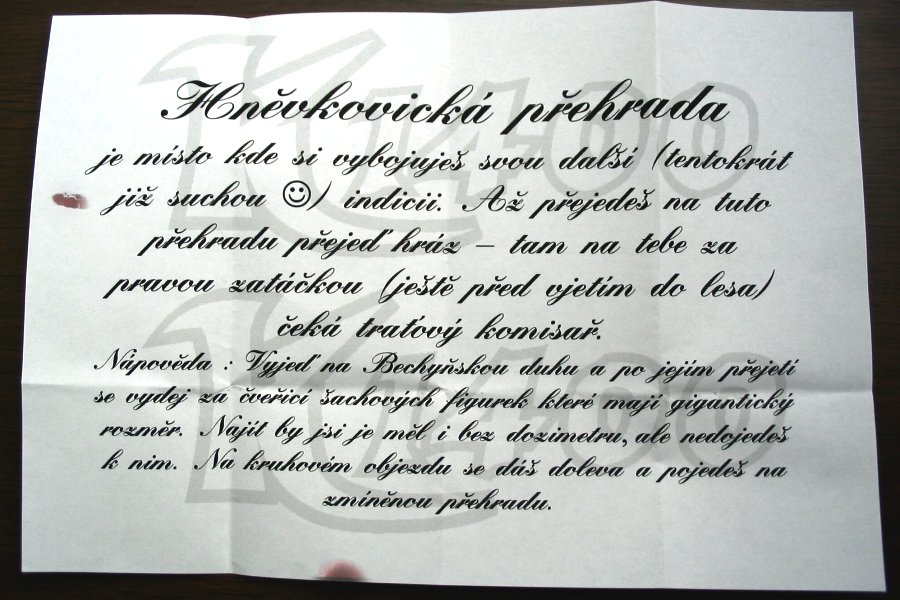 Hněvkovická přehrada
je místo kde si vybojuješ svou další (tentokrát
již suchou ☺) indicii. Až přejedeš na tuto
přehradu přejeď hráz – tam na tebe za
pravou zatáčkou (ještě před vjetím do lesa)
čeká traťový komisař.
Nápověda : Vyjeď na Bechyňskou duhu a po jejím přejetí
se vydej za čveřicí šachových figurek které mají gigantický
rozměr. Najít by jsi je měl i bez dozimetru, ale nedojedeš
k nim. Na kruhovém objezdu se dáš doleva a pojedeš na
zmíněnou přehradu.